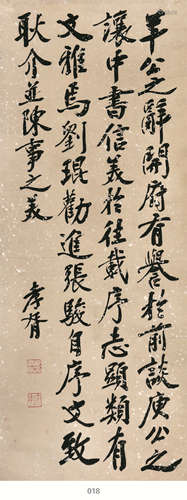 羊公之辭開府有譽於前談庾公之
讓中書信美於往載序志顯類有
文雅焉劉琨勸進張駿自序文致
耿介並陳事之美
孝胥
018